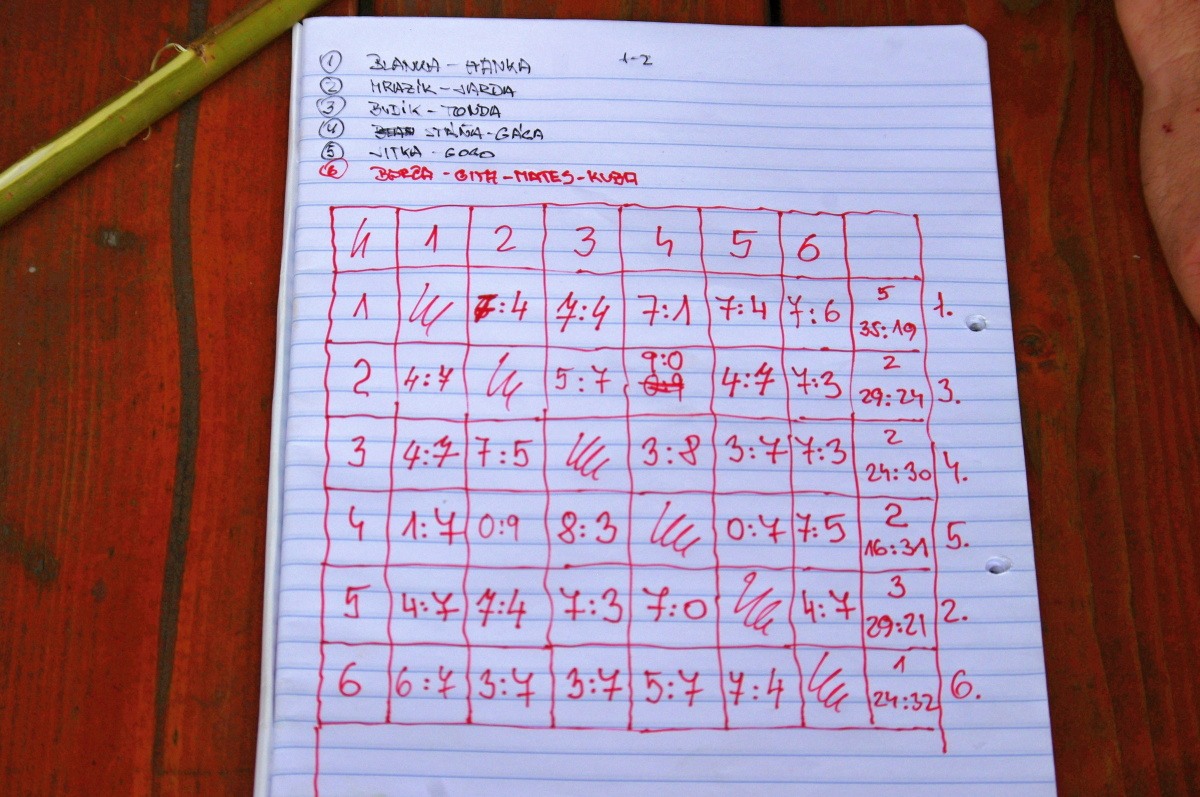 1 BLANKA - HANKA 1-2
2 MRAZÍK - JARDA
3 BUDÍK - TONDA
4 STÁŇA - GÁGA
5 JITKA - GOGO
6 - MATES - KUBA
1 2 3 4 5 6
1 7:4 7:4 7:1 7:4 7:6 5 1.
35:19
2 4:7 5:7 9:0 4:7 7:3 2 3.
0:9 29:24
3 4:7 7:5 3:8 3:7 7:3 2 4.
24:30
4 1:7 0:9 8:3 0:7 7:5 2 5.
16:31
5 4:7 7:4 7:3 7:0 4:7 3 2.
29:21
6 6:7 3:7 3:7 5:7 7:4 1 6.
24:32